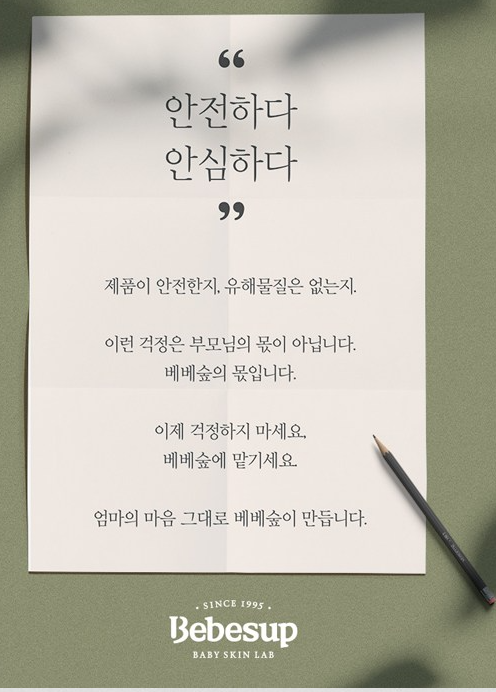 “
안전하다
안심하다
”
제품이 안전한지, 유해물질은 없는지.
이런 걱정은 부모님의 몫이 아닙니다.
베베숲의 몫입니다.
이제 걱정하지 마세요,
베베숲에 맡기세요.
엄마의 마음 그대로 베베숲이 만듭니다.
· SINCE 1995 ·
Bebesup
BABY SKIN LAB